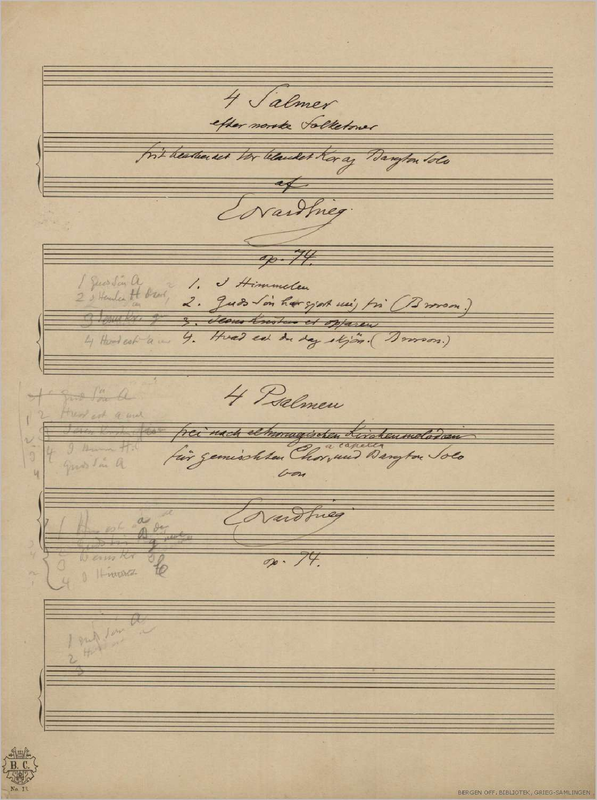 4 Salmer
efter norske Folketoner
frit for blandet Kor og Baryton Solo
af
Edvard Grieg.
op. 74.
1. I Himmelen
2. Guds Søn har gjort mig fri (Brorson.)
3. Jesus Kristus er opfaren
4. Hvad est du dog skjön. (Brorson.)
1 Guds Sön
2 I
3 Jesus Kr.
4 Hvad est
4 Psalmen
frei nach altnorwegischen Kirchenmelodien
a capella
für gemischten Chor und Baryton Solo
von
Guds Sön A
2 Hvad est
3 Jesus
4 I Himm
Guds Sön A
Edvard Grieg
op. 74.
1 Hvad est
Guds Søn
3 Jesus Kr
4 I Himm
1 Guds Sön A
2
3
B. C.
No. 11.
BERGEN OFF. BIBLIOTEK, GRIEG-SAMLINGEN